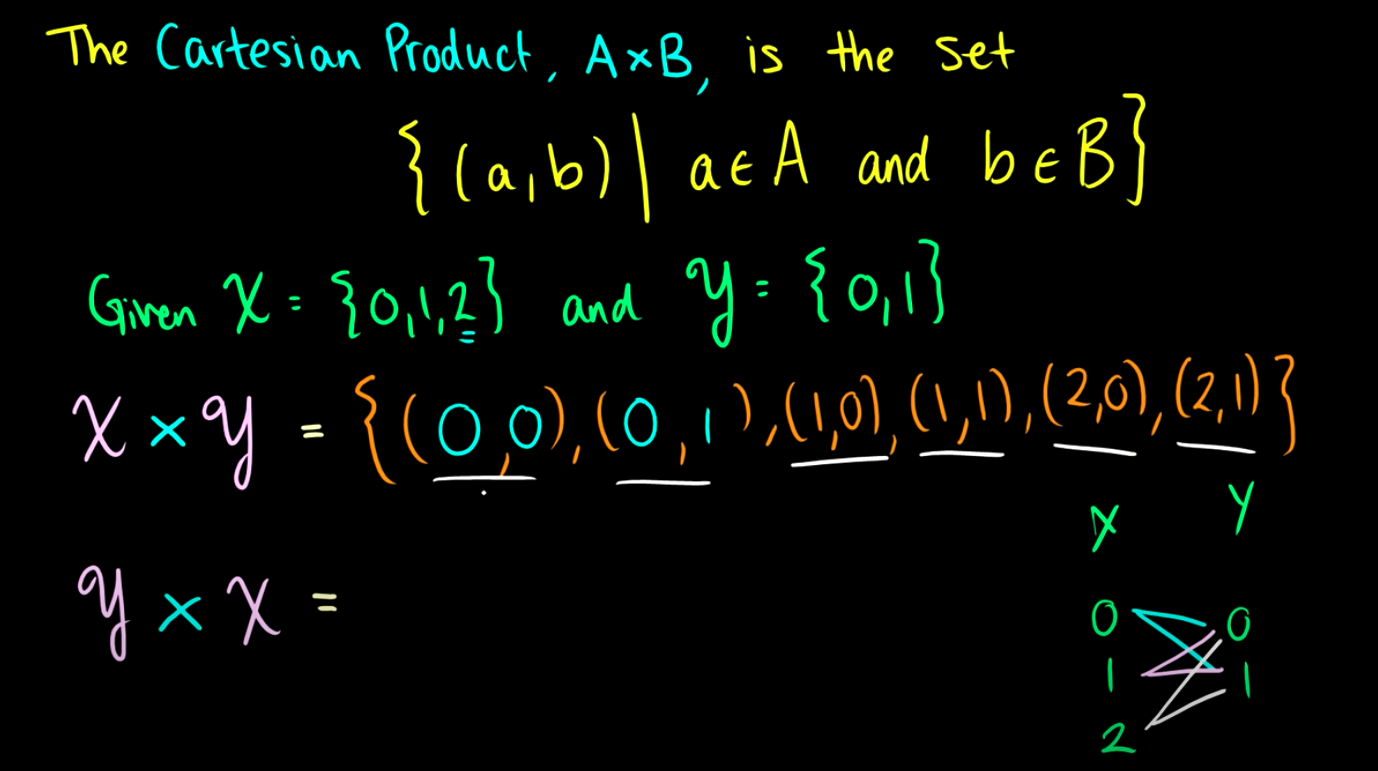 The Cartesian Product, A×B, is the set
{(a,b)| a∈A and b∈B}
Given X = {0,1,2} and Y = {0,1}
X × Y = {(0,0),(0,1),(1,0),(1,1),(2,0),(2,1)}
X Y
Y × X =
0 0
1 1
2